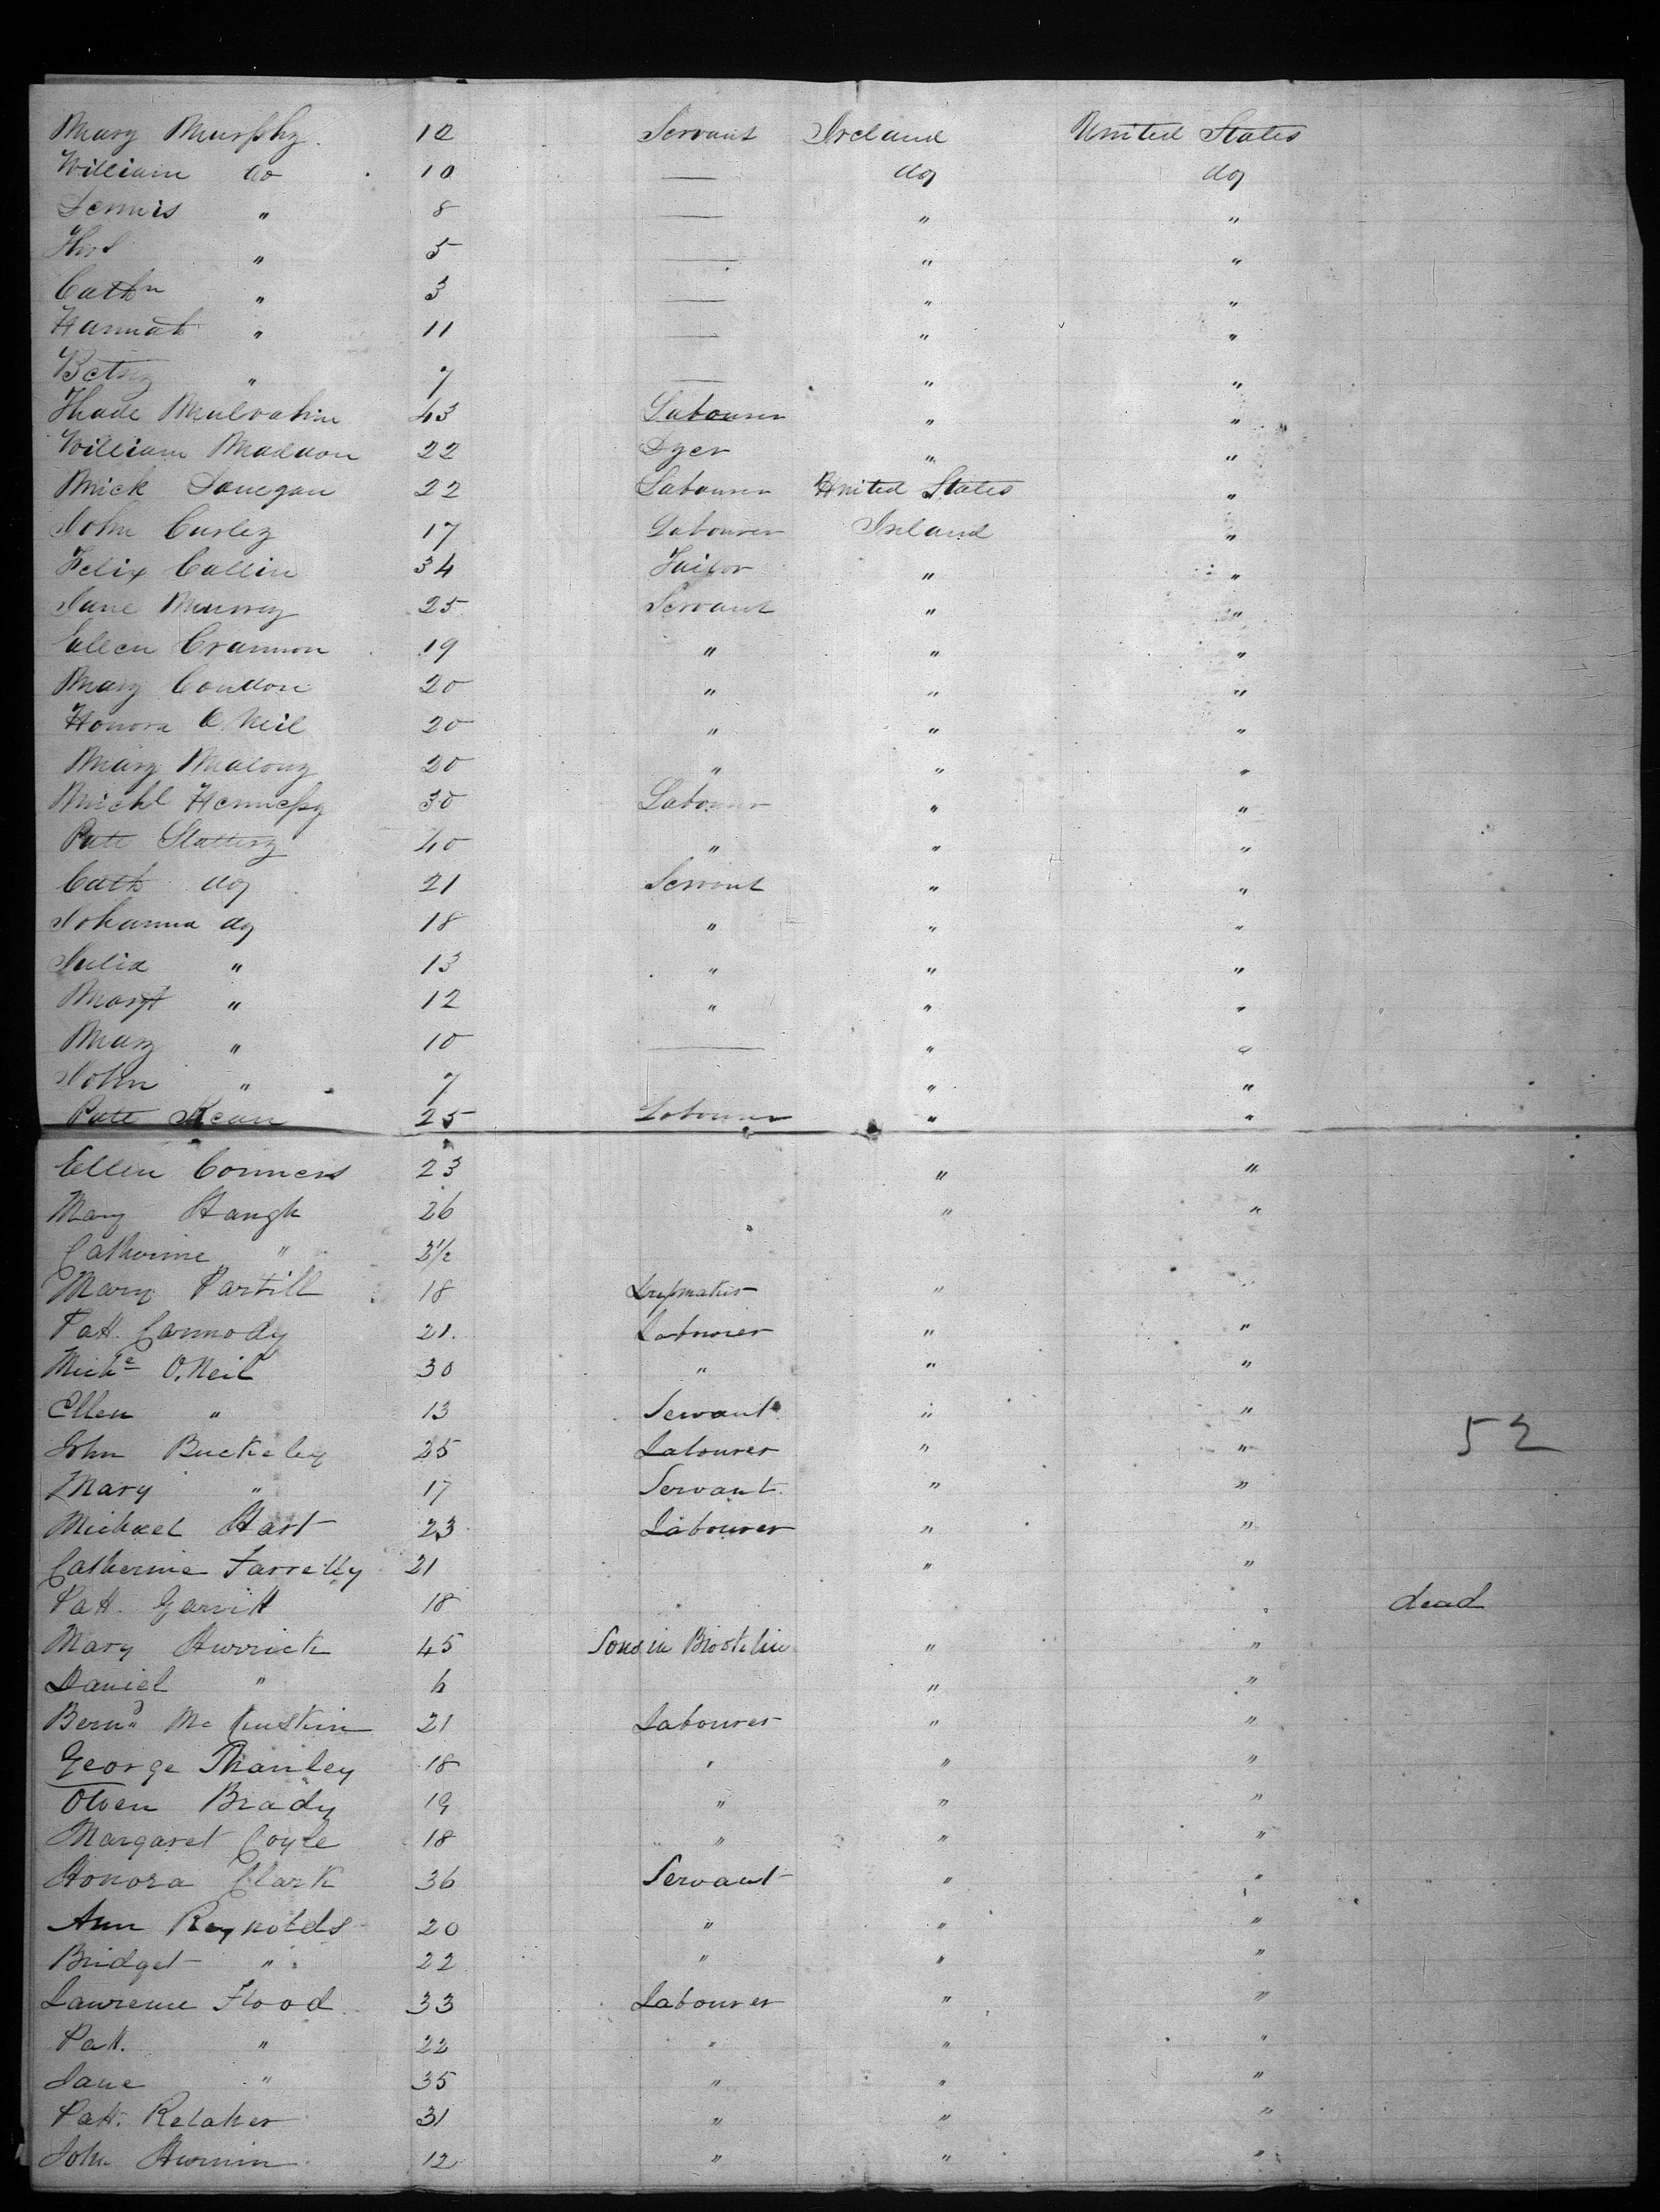 Mary Murphy 12 Servant Ireland United States
William do 10 — do do
Dennis " 8 — " "
Thos " 5 — " "
Cathn " 3 — " "
Hannah " 11 — " "
Betsy " 7 — " "
Thade 43 Labourer " "
William Maddon 22 Dyer " "
Mick Donegan 22 Labourer United States "
John Curley 17 Labourer Ireland "
Felix Callin 34 Tailor " "
Jane Murray 25 Servant " "
Ellen Crannon 19 " " "
Mary Condon 20 " " "
Honora O Neil 20 " " "
Mary Malony 20 " " "
Michl Hennessy 30 Labourer " "
Patt Slattery 40 " " "
Cath do 21 Servant " "
Johanna do 18 " " "
Julia " 13 " " "
Margt " 12 " " "
Mary " 10 — " "
John " 7 " "
Patt Kean 25 Labourer " "
Ellen Conners 23 " "
Mary Haugh 26 " "
Catherine " 3½
Mary Partill 18 Dressmaker "
Patt. Carmody 21. Labourer " "
Miche O.Neil 30 " " "
Ellen " 13 Servant " "
John Buckeley 25 Labourer " " 52
Mary " 17 Servant. " "
Michael Hart 23 Labourer " "
Catherine Farrelly 21 " "
Patt. 18 dead
Mary Hurrick 45 Sons in " "
Daniel " 6 " "
Bernd Mc 21 Labourer " "
George 18 " " "
Owen Brady 19 " " "
Margaret Coyle 18 " " "
Honora Clark 36 Servant " "
Ann Reynolds 20 " " "
Bridget " 22 " " "
Lawrence Flood 33 Labourer " "
Patt. " 22 " " "
Jane " 35 " " "
Patt. Kelaher 31 " " "
John 12 " " "